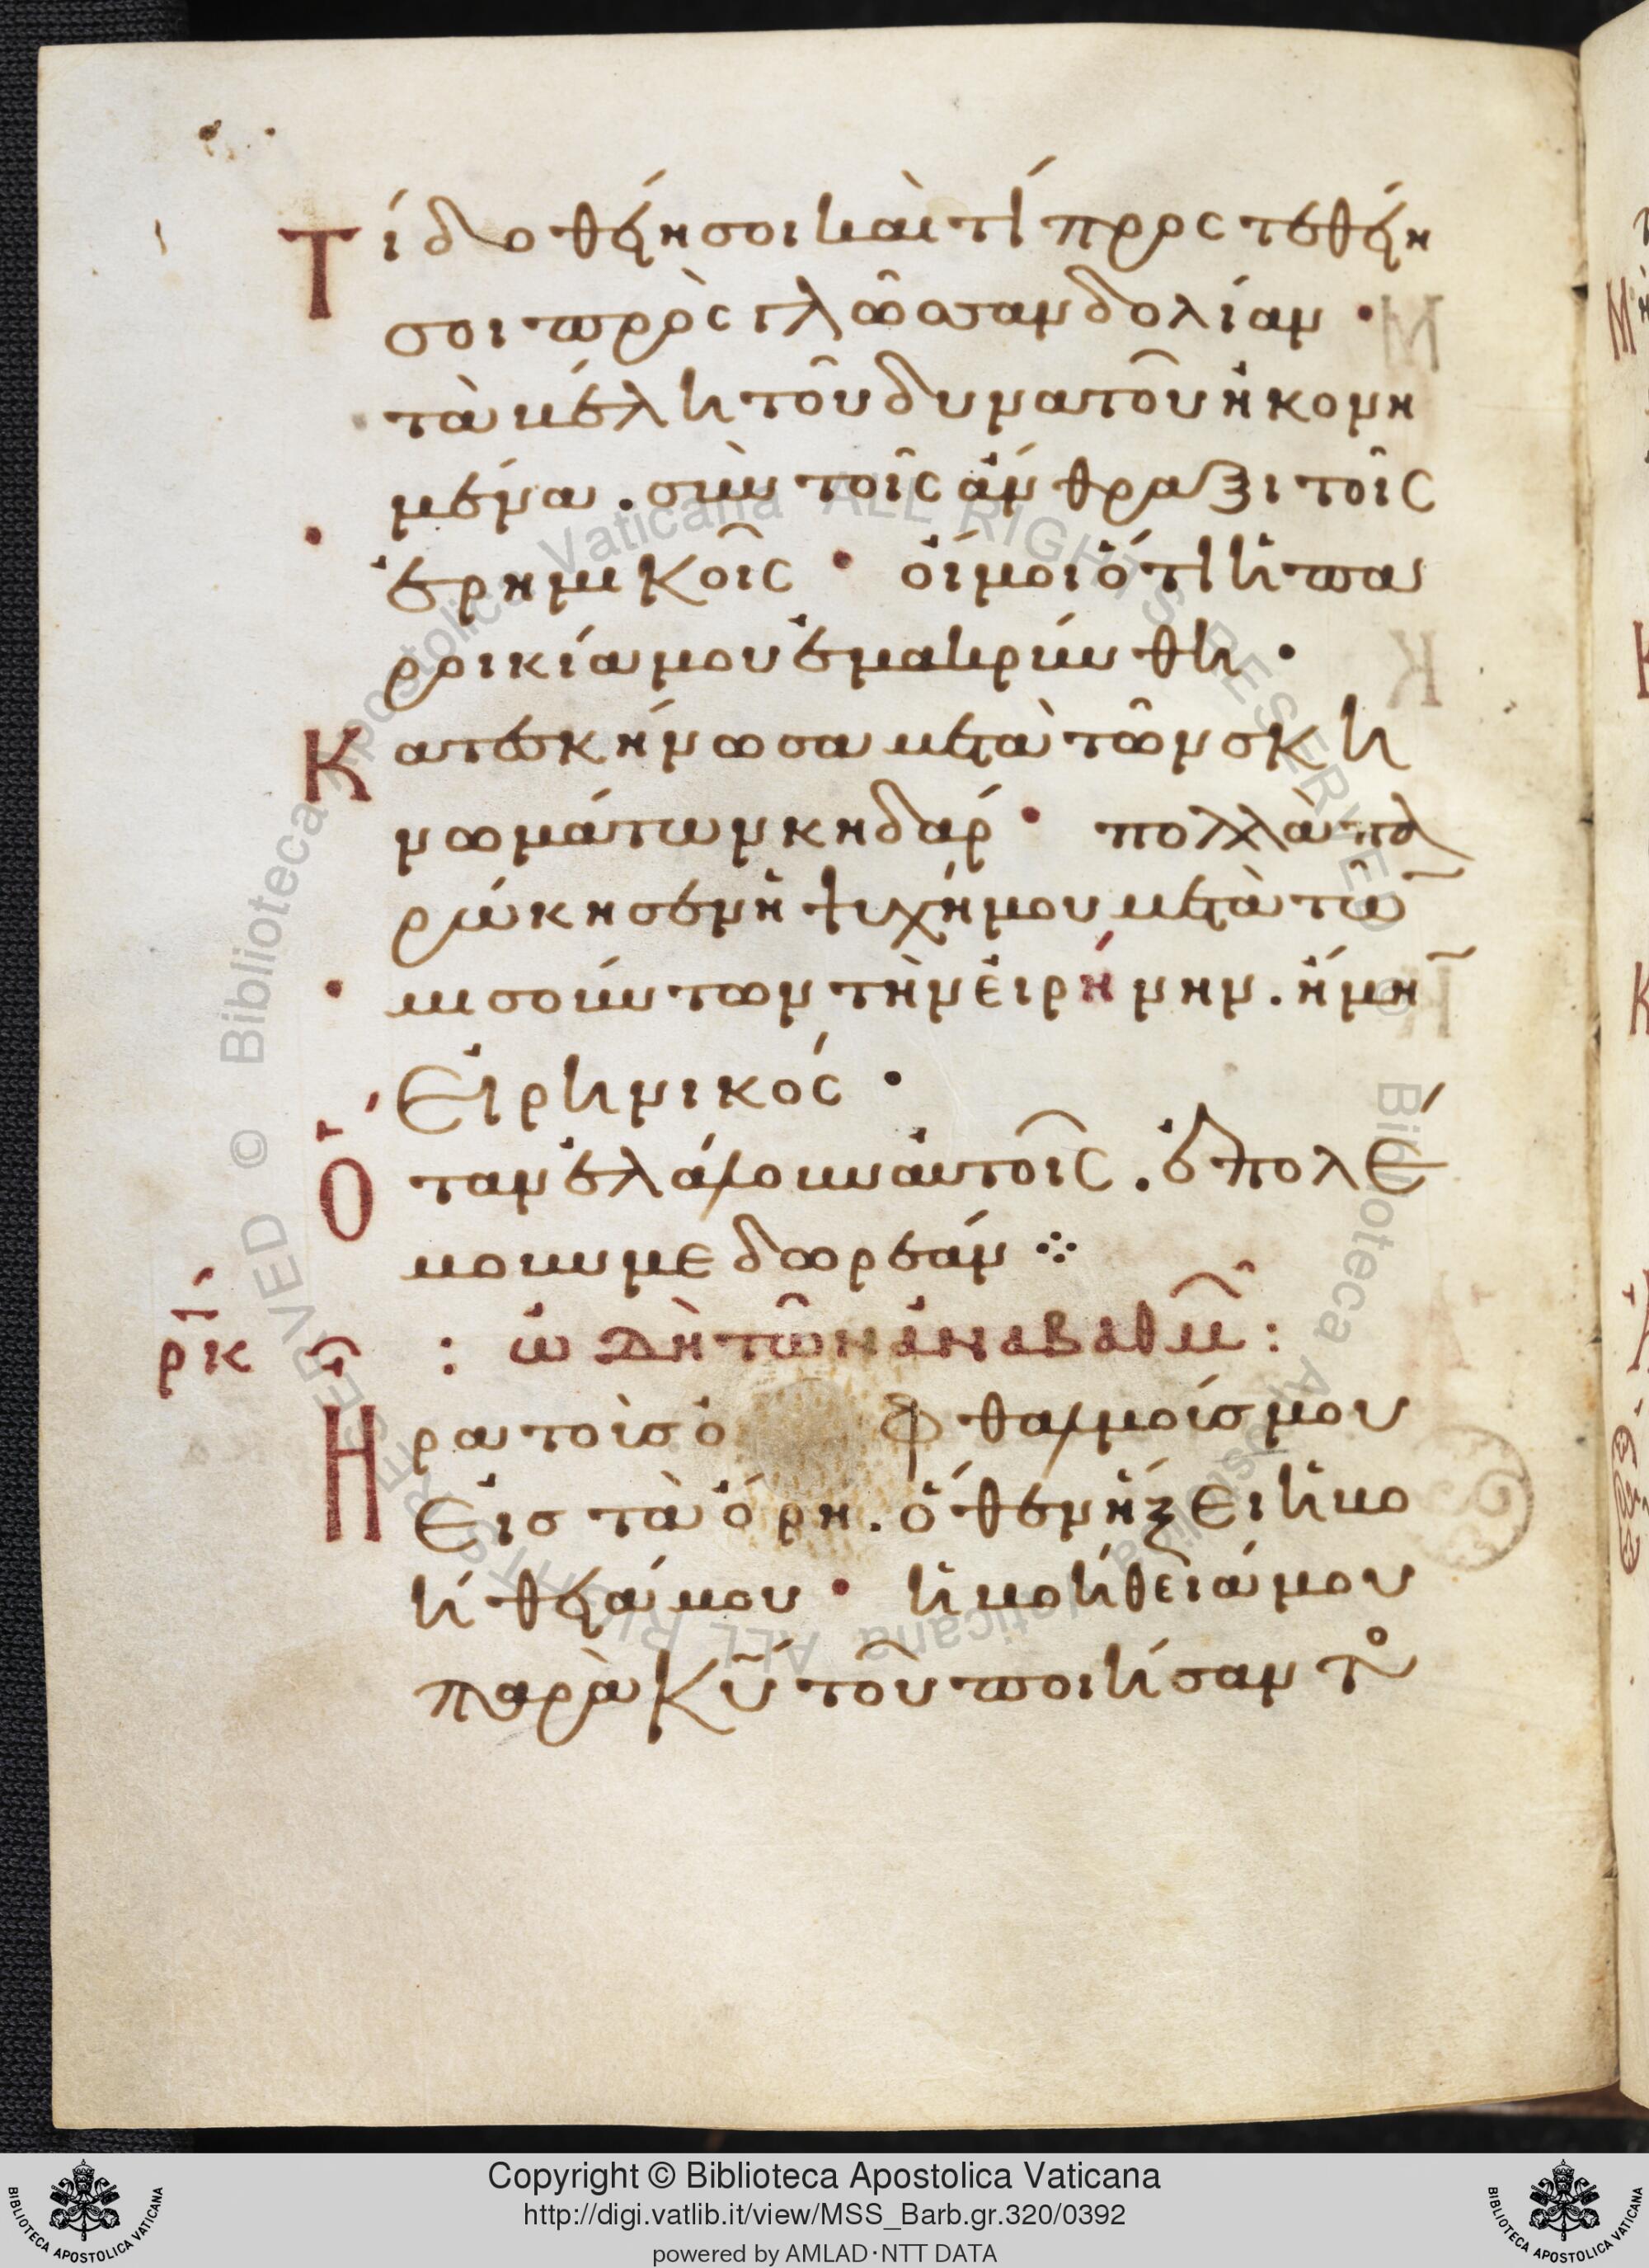 Τί δοθείη σοι καὶ τί προστεθείη
σοι πρὸς γλῶσσαν δολίαν ·
τὰ βέλη τοῦ δυνατοῦ ἠκονη
μένα . σὺν τοῖς ἄνθραξι τοῖς
ἐρημικοῖς · οἴμοι ὅτι ἡ πα
ροικία μου ἐμακρύνθη ·
Κατεσκήνωσα μετὰ τῶν σκη
νωμάτων κηδάρ · πολλὰ πα
ρώκησεν ἡ ψυχή μου μετὰ τῶ̅
μισούντων τὴν εἰρήνην . ἤμη̅
Εἰρηνικός ·
Ὅταν ἐλάλουν αὐτοῖς . ἐπολέ
μουν με δωρεάν ⁘
ρκ : ὠδὴ τῶν ἀναβαθμ̅ :
Ἦρα τοὺσ ὀφθαλμούσ μου
Εἰσ τὰ ὄρη . ὅθεν ἥξει ἡ βο
ήθειά μου · ἡ βοήθειά μου
παρὰ κ̅υ̅ τοῦ ποιήσαντο
Copyright © Biblioteca Apostolica Vaticana
http://digi.vatlib.it/view/MSS_Barb.gr.320/0392
powered by AMLAD·NTT DATA
BIBLIOTECA APOSTOLICA VATICANA
BIBLIOTECA APOSTOLICA VATICANA